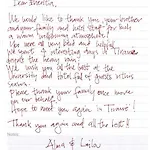 Dear Brientin,
We would like to thank you, your brother
and your family and hotel staff for such
a warm welcoming atmosphere!
You were all very kind and helpful.
We spent interesting days in Tirana
despite the heavy rain!
We wish you all the best at the
University and hotel full of guests within
Please, thank your family once more
on our behalf.
Hope to see you again in Tirana!
Thank you again and all the best!
Alma & Laila